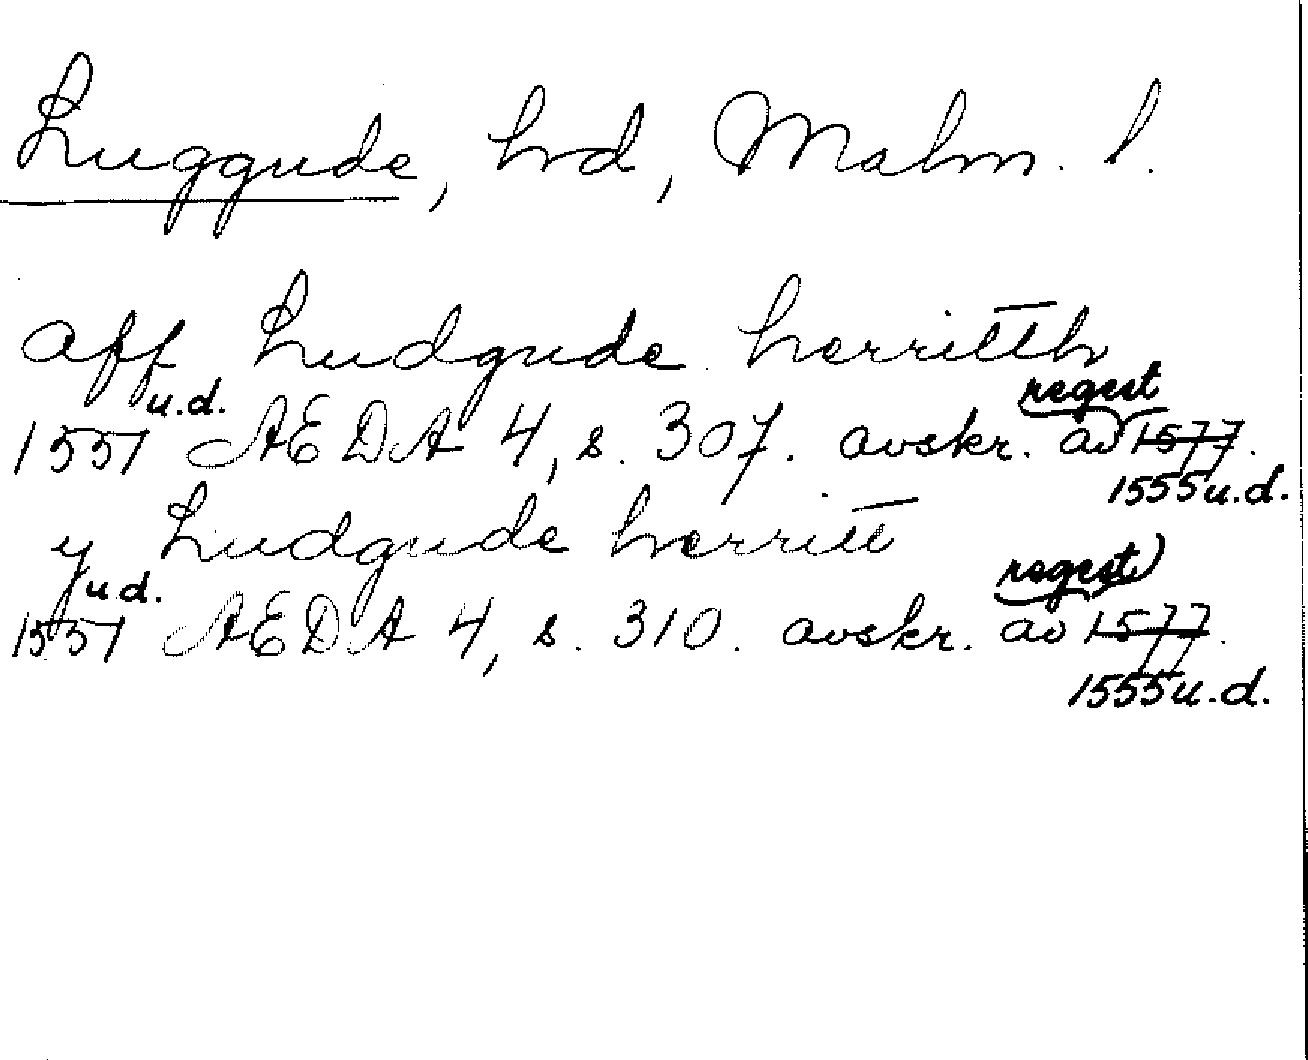 Luggude, hrd, Malm. l.
aff Ludgude herritth
1551 u.d. AEDA 4, s. 307. avskr. av regest 1577.
1555 u.d.
y Ludgude herritt
1551 u.d. AEDA 4, s. 310. avskr. av regest 1577.
1555 u.d.